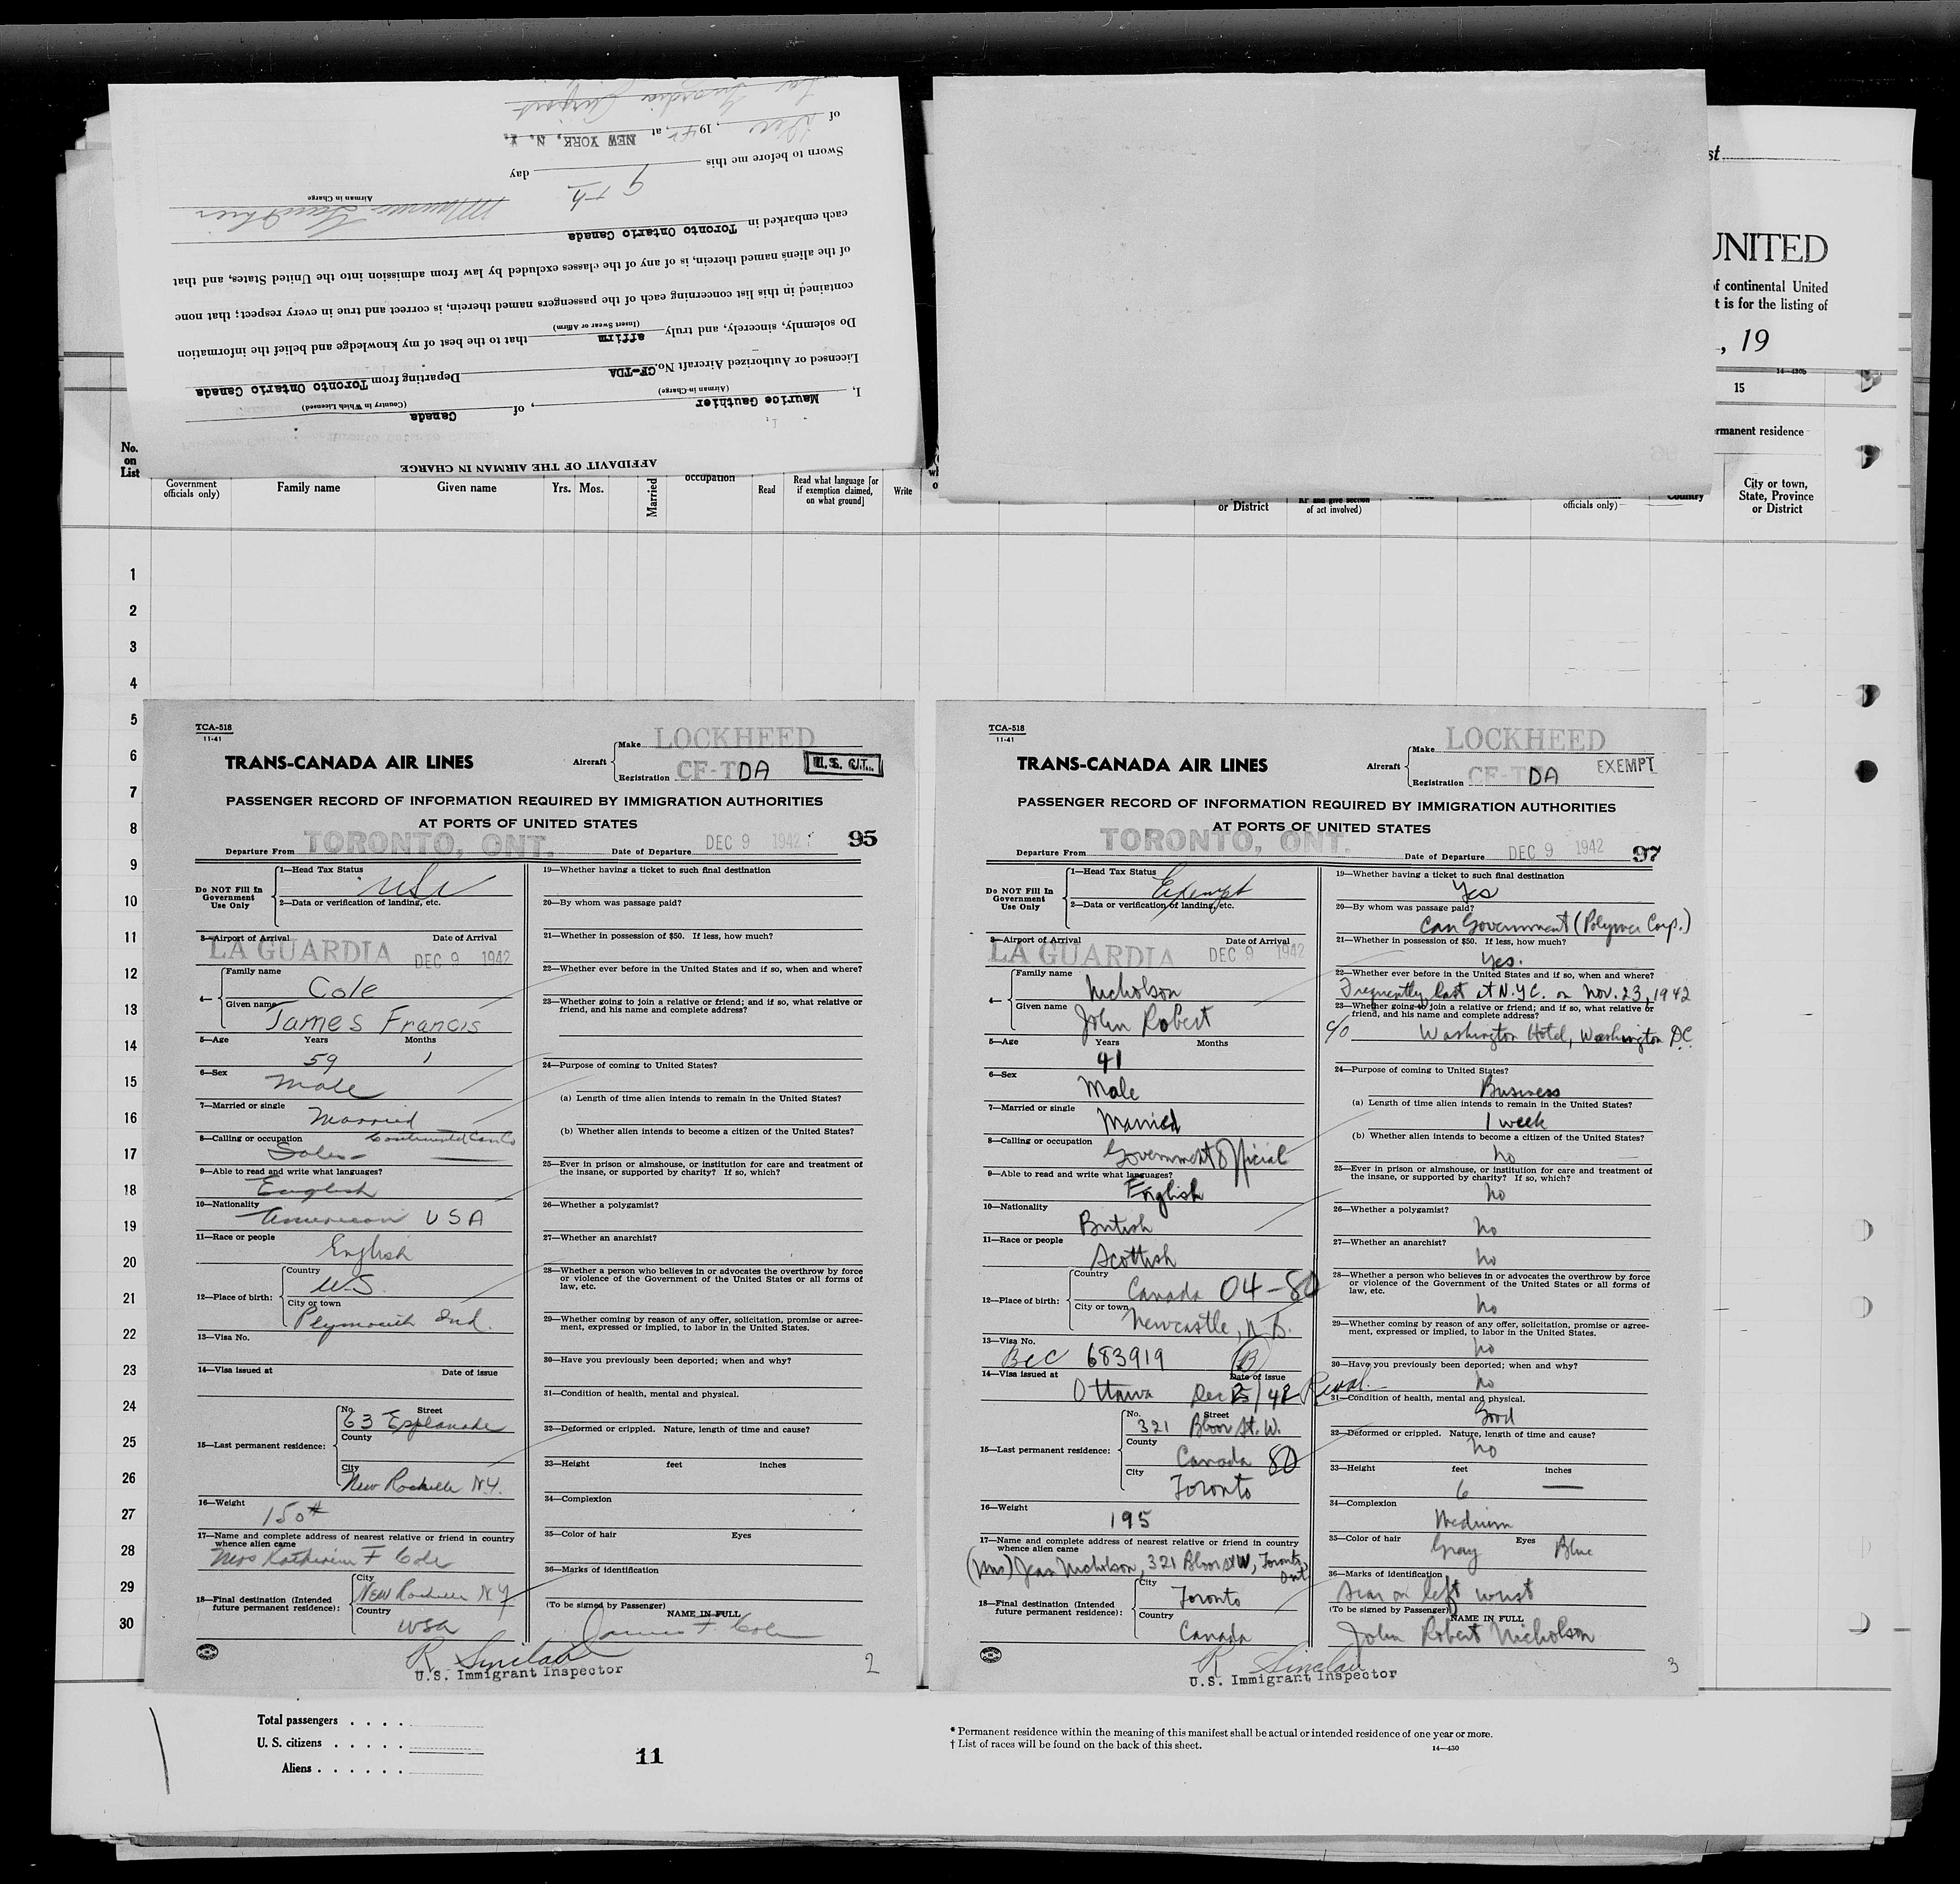 La Guardia Airport
of Dec, 1942, at NEW YORK, N. Y.
Sworn to before me this 9th day
Maurice Gauthier
Airman in Charge
each embarked in Toronto Ontario Canada
of the aliens named therein, is of any of the classes excluded by law from admission into the United States, and that
contained in this list concerning each of the passengers named therein, is correct and true in every respect; that none
(Insert Swear or Affirm)
Do solemnly, sincerely, and truly affirm that to the best of my knowledge and belief the information
Licensed or Authorized Aircraft No. CF-TDA Departing from Toronto Ontario Canada
(Airman-in-Charge) (Country in Which Licensed)
I, Maurice Gauthier, of Canada
AFFIDAVIT OF THE AIRMAN IN CHARGE
st
UNITED
of continental United
t is for the listing of
, 19
14—430b
15
rmanent residence
No. on List
Government officials only)
Family name
Given name
Yrs. Mos.
Married
occupation
Read
Read what language [or if exemption claimed, on what ground]
Write
or District
of act involved)
officials only)
Country
City or town, State, Province or District
1
2
3
4
5
6
7
8
9
10
11
12
13
14
15
16
17
18
19
20
21
22
23
24
25
26
27
28
29
30
TCA-518
11-41
TRANS-CANADA AIR LINES
Aircraft
Make LOCKHEED
Registration CF-TDA
U.S. CIT.
PASSENGER RECORD OF INFORMATION REQUIRED BY IMMIGRATION AUTHORITIES
AT PORTS OF UNITED STATES
Departure From TORONTO, ONT. Date of Departure DEC 9 1942 95
Do NOT Fill In Government Use Only
1—Head Tax Status USA
2—Data or verification of landing, etc.
3—Airport of Arrival LA GUARDIA Date of Arrival DEC 9 1942
4— Family name Cole
Given name James Francis
5—Age Years 59 Months 1
6—Sex Male
7—Married or single Married
8—Calling or occupation Sales Continental Can Co
9—Able to read and write what languages? English
10—Nationality American USA
11—Race or people English
12—Place of birth: Country U.S.
City or town Plymouth Ind.
13—Visa No.
14—Visa issued at Date of issue
15—Last permanent residence: No. Street 63 Esplanade
County
City New Rochelle N.Y.
16—Weight 150#
17—Name and complete address of nearest relative or friend in country whence alien came
Mrs Katherine F Cole
18—Final destination (Intended future permanent residence): City New Rochelle N Y
Country USA
19—Whether having a ticket to such final destination
20—By whom was passage paid?
21—Whether in possession of $50. If less, how much?
22—Whether ever before in the United States and if so, when and where?
23—Whether going to join a relative or friend; and if so, what relative or friend, and his name and complete address?
24—Purpose of coming to United States?
(a) Length of time alien intends to remain in the United States?
(b) Whether alien intends to become a citizen of the United States?
25—Ever in prison or almshouse, or institution for care and treatment of the insane, or supported by charity? If so, which?
26—Whether a polygamist?
27—Whether an anarchist?
28—Whether a person who believes in or advocates the overthrow by force or violence of the Government of the United States or all forms of law, etc.
29—Whether coming by reason of any offer, solicitation, promise or agreement, expressed or implied, to labor in the United States.
30—Have you previously been deported; when and why?
31—Condition of health, mental and physical.
32—Deformed or crippled. Nature, length of time and cause?
33—Height feet inches
34—Complexion
35—Color of hair Eyes
36—Marks of identification
(To be signed by Passenger) NAME IN FULL
James F. Cole
R Sinclair
U.S. Immigrant Inspector
2
TCA-518
11-41
TRANS-CANADA AIR LINES
Aircraft
Make LOCKHEED
Registration CF-TDA
EXEMPT
PASSENGER RECORD OF INFORMATION REQUIRED BY IMMIGRATION AUTHORITIES
AT PORTS OF UNITED STATES
Departure From TORONTO, ONT. Date of Departure DEC 9 1942 97
Do NOT Fill In Government Use Only
1—Head Tax Status Exempt
2—Data or verification of landing, etc.
3—Airport of Arrival LA GUARDIA Date of Arrival DEC 9 1942
4— Family name Nicholson
Given name John Robert
5—Age Years 41 Months
6—Sex Male
7—Married or single Married
8—Calling or occupation Government Official
9—Able to read and write what languages? English
10—Nationality British
11—Race or people Scottish
12—Place of birth: Country Canada 04-80
City or town Newcastle, N.B.
13—Visa No. BCC 683919 (B)
14—Visa issued at Ottawa Date of issue Dec 2/42
15—Last permanent residence: No. Street 321 Bloor St. W.
County Canada 80
City Toronto
16—Weight 195
17—Name and complete address of nearest relative or friend in country whence alien came
(Mrs) Jean Nicholson, 321 Bloor St W, Toronto, Ont
18—Final destination (Intended future permanent residence): City Toronto
Country Canada
19—Whether having a ticket to such final destination Yes
20—By whom was passage paid? Can Government (Polymer Corp.)
21—Whether in possession of $50. If less, how much? Yes.
22—Whether ever before in the United States and if so, when and where?
Frequently, last at N.Y.C. on Nov. 23, 1942
23—Whether going to join a relative or friend; and if so, what relative or friend, and his name and complete address?
c/o Washington Hotel, Washington D.C.
24—Purpose of coming to United States? Business
(a) Length of time alien intends to remain in the United States? 1 week
(b) Whether alien intends to become a citizen of the United States? No
25—Ever in prison or almshouse, or institution for care and treatment of the insane, or supported by charity? If so, which? No
26—Whether a polygamist? No
27—Whether an anarchist? No
28—Whether a person who believes in or advocates the overthrow by force or violence of the Government of the United States or all forms of law, etc. No
29—Whether coming by reason of any offer, solicitation, promise or agreement, expressed or implied, to labor in the United States. No
30—Have you previously been deported; when and why? No
31—Condition of health, mental and physical. Good
32—Deformed or crippled. Nature, length of time and cause? No
33—Height feet 6 inches —
34—Complexion Medium
35—Color of hair Gray Eyes Blue
36—Marks of identification Scar on left wrist
(To be signed by Passenger) NAME IN FULL
John Robert Nicholson
R Sinclair
U.S. Immigrant Inspector
3
Total passengers . . . .
U. S. citizens . . . . .
Aliens . . . . . .
11
* Permanent residence within the meaning of this manifest shall be actual or intended residence of one year or more.
† List of races will be found on the back of this sheet.
14—430